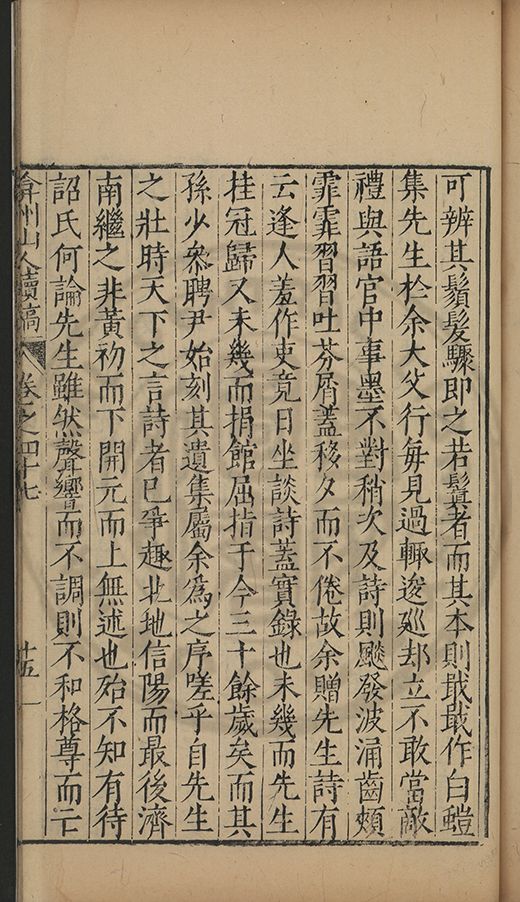 可辨其鬚髮驟即之若鬒者而其本則戢戢作白螘
集先生於余大父行每見過輒逡廵却立不敢當敵
禮與語官中事墨不對稍次及詩則飈發波涌齒頰
霏霏習習吐芬屑蓋移夕而不倦故余贈先生詩有
云逢人羞作吏竟日坐談詩蓋實錄也未幾而先生
挂冠歸又未幾而捐館屈指于今三十餘歲矣而其
孫少叅聘尹始刻其遺集屬余爲之序嗟乎自先生
之壯時天下之言詩者已爭趣北地信陽而最後濟
南繼之非黃初而下開元而上無述也殆不知有待
詔氏何論先生雖然聲響而不調則不和格尊而亡
弇州山人續稿 卷之四十七 廿五